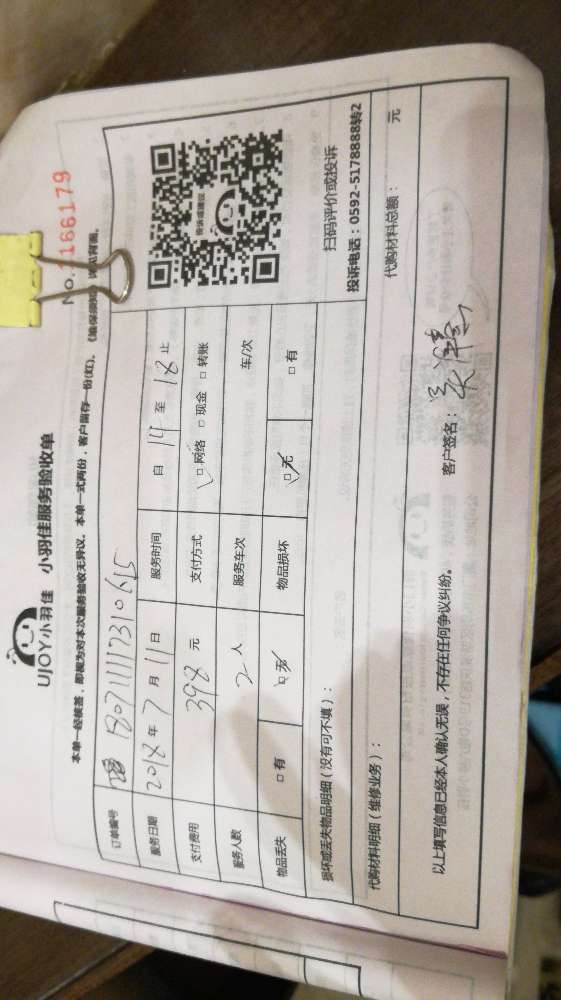 UJOY小羽佳 小羽佳服务验收单
No.1166179
本单一经核签，即视为对本次服务验收无异议。本单一式两份，客户留存一份(红)。《维保须知》详见背面。
订单编号 180711117310615
服务日期 2018年7月11日 服务时间 自14至18止
支付费用 398元 支付方式 □网络 □现金 □转账
服务人数 2人 服务车次 车/次
物品丢失 □有 □无 物品损坏 □无 □有
扫码评价或投诉
投诉电话：0592-5178888转2
损坏或丢失物品明细（没有可不填）：
代购材料明细（维修业务）： 代购材料总额： 元
以上填写信息已经本人确认无误，不存在任何争议纠纷。 客户签名：